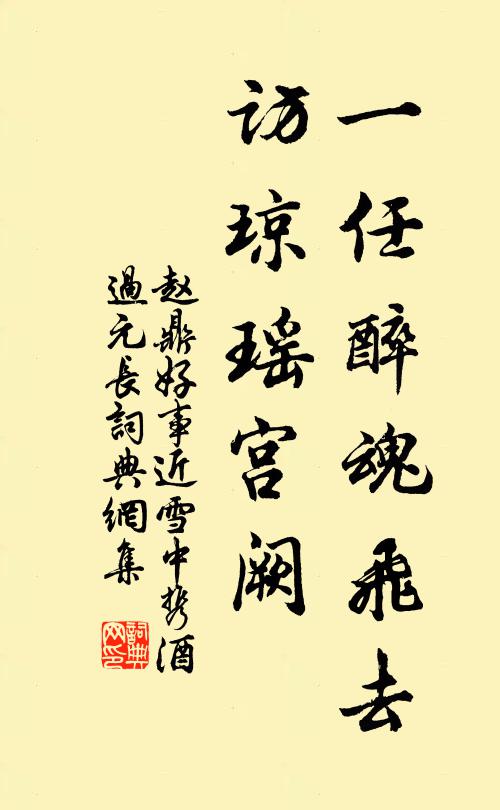 一任醉魂飛去
访琼瑶宫阙
赵鼎好事近雪中携酒
過元長詞典網集
詞典
网印